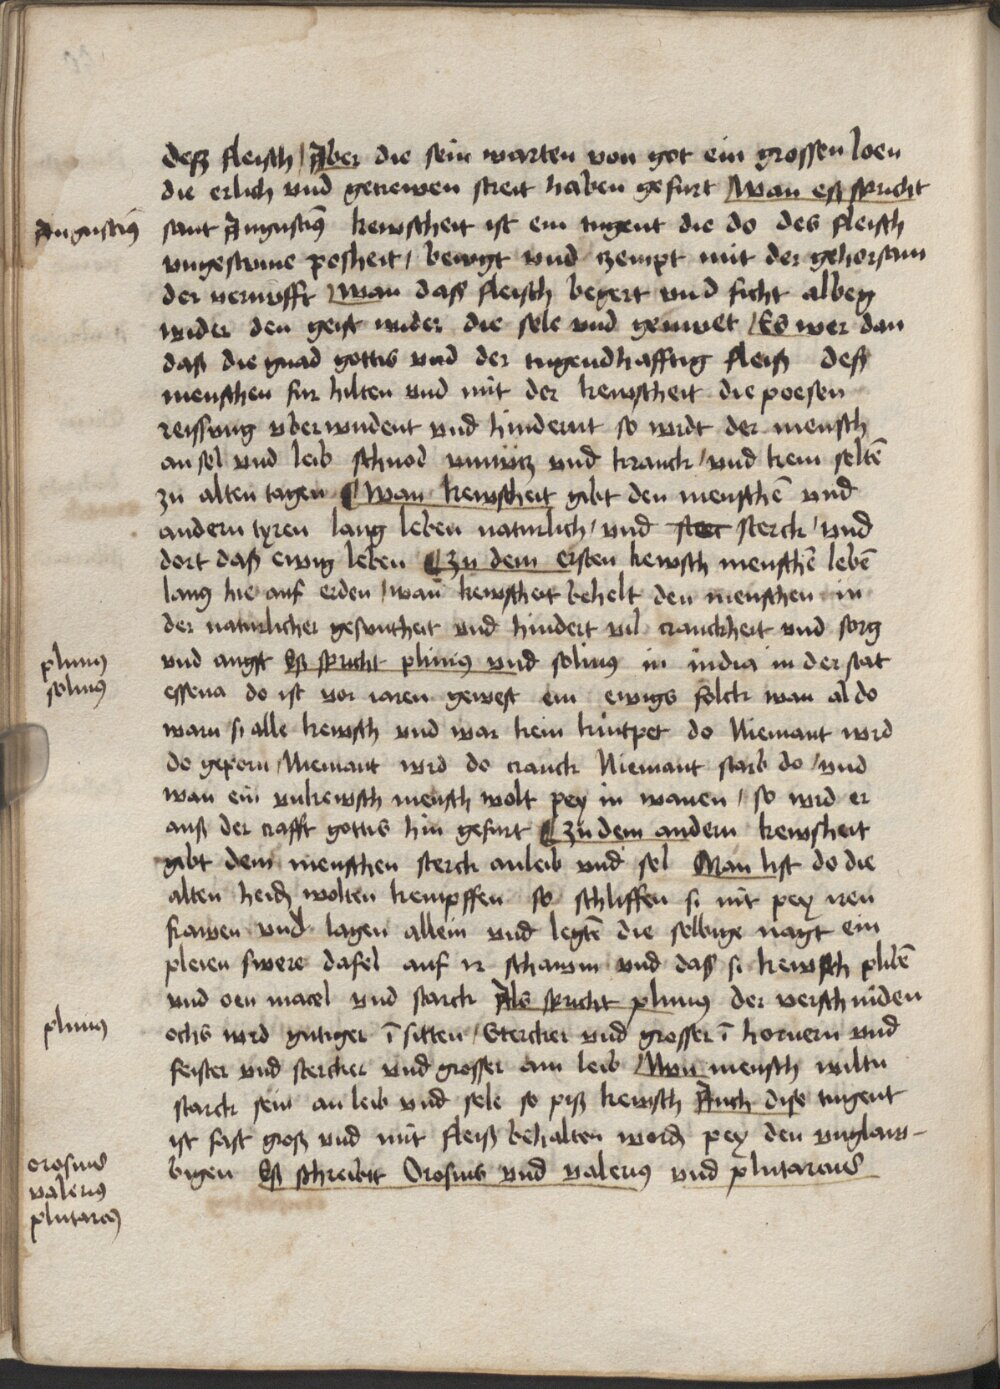 deß fleisch / Aber die sein warten von got ein grossen loen
die erlich vnd getrewen streit haben gefurt / Wan eß spricht
Augustinꝰ
sant Augustinꝰ kewscheit ist ein tugent die do des fleisch
vngestvme posheit / bewgt vnd czempt mit der gehorsam
der vernufft / Wan daß fleisch begert vnd ficht albeg
wider den geist wider die sele vnd gemuet / Es wer dan
daß die gnad gottis vnd der tugendhafftig fleiß deß
menschen fur hilten vnd mit der kewscheit die poesen
reissvng vberwindent vnd hindernt so wirdt der mensch
an sel vnd leib schnod vnnücz vnd kranck / vnd kem seltē
zu alten tagen ¶ Wan kewscheit gibt den menschē vnd
andern tyren lang leben naturlich / vnd sterck / vnd
dort daß ewig leben ¶ Zu dem ersten kewsch menschē lebē
lang hie auf erden / wan kewscheit behelt den menschen in
der naturlicher gesvntheit vnd hindert vil cranckheit vnd sorg
pliniꝰ
soliniꝰ
vnd angst Eß spricht pliniꝰ vnd soliniꝰ in india in der stat
essena do ist vor iaren gewest ein ewigs folck wan al do
warn si alle kewsch vnd war kein kintpet do Niemant wird
do geporn / Niemant wird do cranck Niemant starb do / vnd
wan ein vnkewsch mensch wolt pey in wanen / so wird er
auß der crafft gottis hin gefurt ¶ Zu dem andern kewscheit
gibt dem menschen sterck an leib vnd sel Man list do die
alten heidē wolten kempffen so schliffen si nit pey iren
frawen vnd lagen allein vnd legtē die selbige nagt ein
pleien swere dafel auf ir schawm vnd daß si kewsch plibē
vnd oen macel vnd starck Als spricht pliniꝰ der verschniden
pliniꝰ
ochs wird gutiger ī sitten / Stercker vnd grosser ī hornern vnd
feister vnd stercker vnd grosser am leib / Nvn mensch wiltu
starck sein an leib vnd sele so piß kewsch Auch dise tugent
ist fast groß vnd mit fleiß behalten wordē pey den vnglaw-
orosius
valeriꝰ
plutarcꝰ
bigen Eß schreibt Orosius vnd valeriꝰ vnd plutarcus